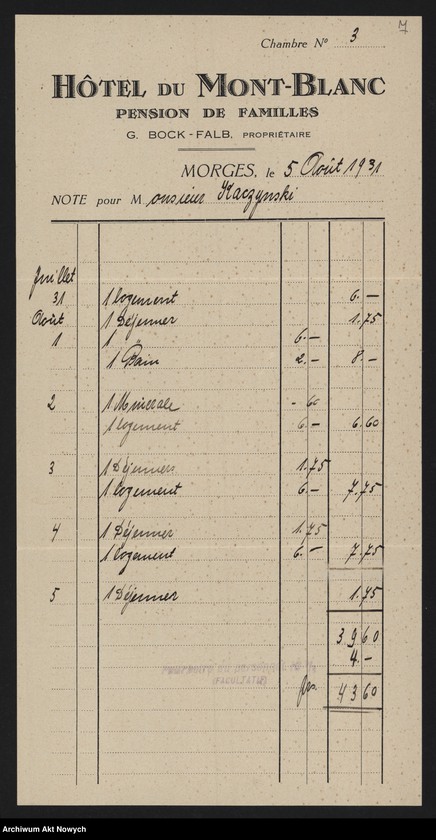 7
Chambre Nº 3
HÔTEL DU MONT-BLANC
PENSION DE FAMILLES
G. BOCK-FALB, PROPRIÉTAIRE
MORGES, le 5 Août 1931
NOTE pour Monsieur Kaczynski
Juillet
31 1 logement 6.—
Août 1 Déjeuner 1.75
1 1 " 6.—
1 Bain 2.— 8.—
2 1 Minerale -.60
1 logement 6.— 6.60
3 1 Déjeuner 1.75
1 logement 6.— 7.75
4 1 Déjeuner 1.75
1 logement 6.— 7.75
5 1 Déjeuner 1.75
39 60
4.—
(FACULTATIF)
frs. 43 60
Archiwum Akt Nowych